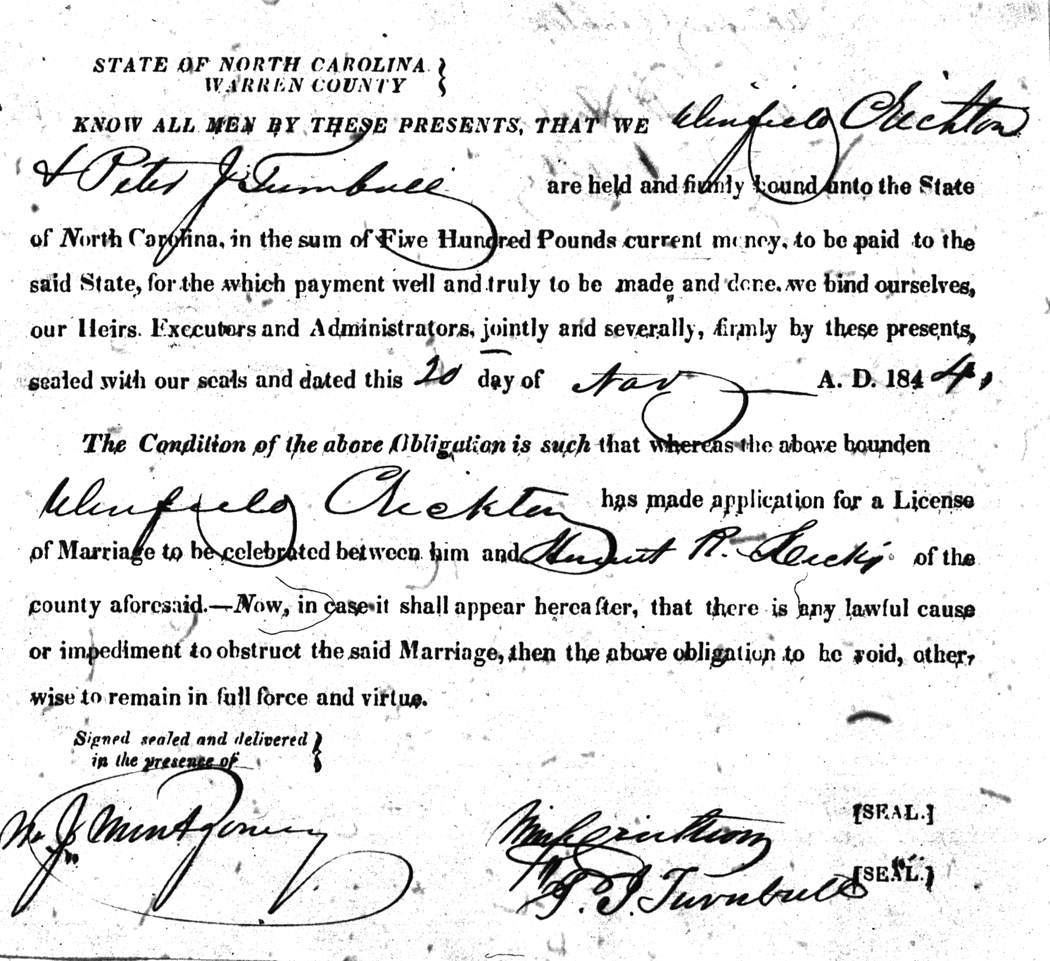 STATE OF NORTH CAROLINA }
WARREN COUNTY
KNOW ALL MEN BY THESE PRESENTS, THAT WE Winfield Crickton
& Peter J. Turnbull are held and firmly bound unto the State
of North Carolina, in the sum of Five Hundred Pounds current money, to be paid to the
said State, for the which payment well and truly to be made and done. we bind ourselves,
our Heirs. Executors and Administrators, jointly and severally, firmly by these presents,
sealed with our seals and dated this 20 day of Nov A. D. 184 4.
The Condition of the above Obligation is such that whereas the above bounden
Winfield Crickton has made application for a License
of Marriage to be celebrated between him and R. of the
county aforesaid.—Now, in case it shall appear hereafter, that there is any lawful cause
or impediment to obstruct the said Marriage, then the above obligation to be void, other-
wise to remain in full force and virtue.
Signed sealed and delivered }
in the presence of
J. Montgomery
[SEAL.]
P. J. Turnbull [SEAL.]